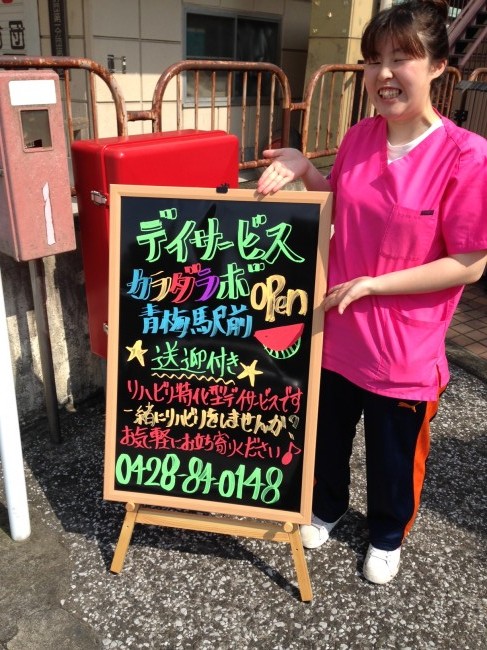 デイサービス
カラダラボ open
青梅駅前
送迎付き
リハビリ特化型デイサービスです
一緒にリハビリをしませんか?
お気軽にお立ち寄りください♪
0428-84-0148